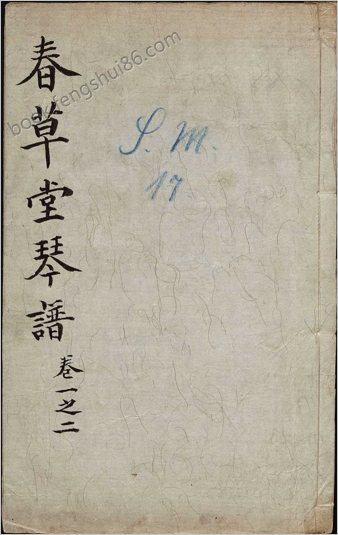 春草堂琴譜
卷一之二
S. M.
17
book.fengshui86.com